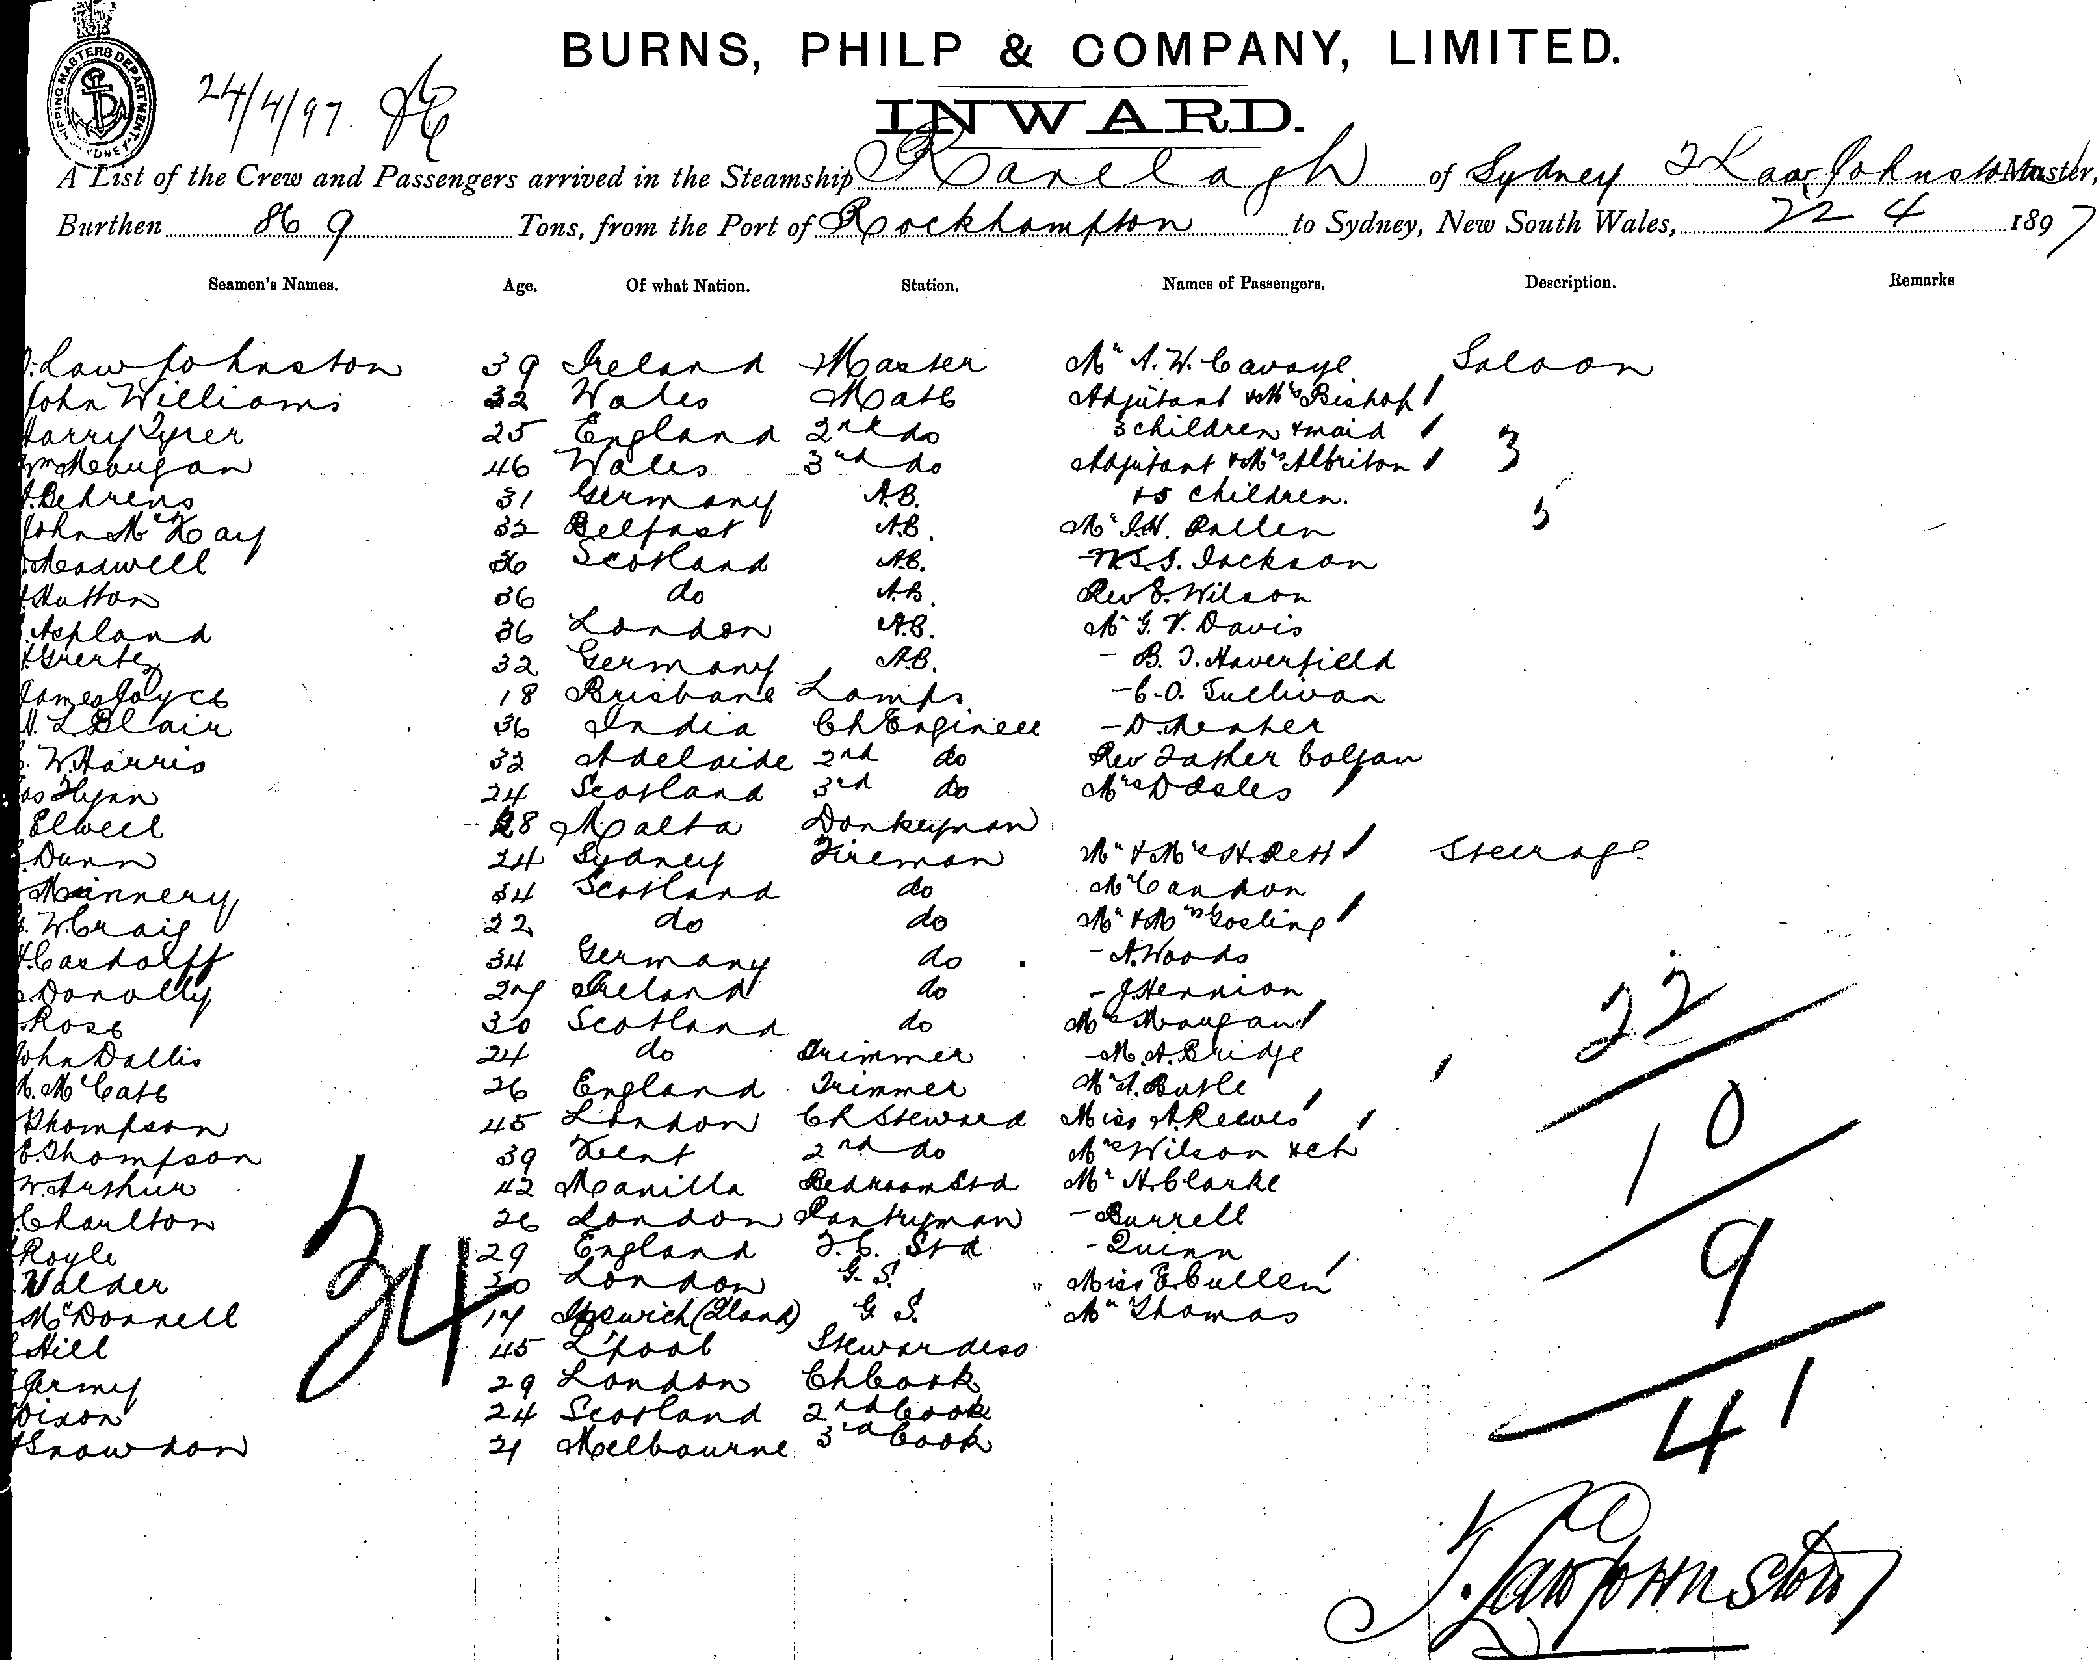 SHIPPING MASTERS DEPARTMENT SYDNEY
24/4/97
BURNS, PHILP & COMPANY, LIMITED.
INWARD.
A List of the Crew and Passengers arrived in the Steamship Ranelagh of Sydney T Law Johnston Master,
Burthen 869 Tons, from the Port of Rockhampton to Sydney, New South Wales, 22 4 1897
Seamen's Names. Age. Of what Nation. Station. Names of Passengers. Description. Remarks
Law Johnston 39 Ireland Master Mr A. W. Cavaye Saloon
John Williams 32 Wales Mate Adjutant & Mrs Bishop
Harry Tyrer 25 England 2nd do 3 children & maid 3
Wm Mebugan 46 Wales 3rd do Adjutant & Mrs Albriton
Behrens 31 Germany A.B. & 5 children. 5
John McKay 32 Belfast A.B. Mr J.H. Pallen
Meadwell 36 Scotland A.B. W.S.S. Jackson
Hutton 36 do A.B. Rev E. Wilson
Aspland 36 London A.B. Mr G. V. Davis
Grertz 32 Germany A.B. - B. J. Haverfield
James Joyce 18 Brisbane Lamps - C. O. Sullivan
L Blair 36 India Ch Engineer - D. Menher
W. Harris 32 Adelaide 2nd do Rev Father Colgan
Flynn 24 Scotland 3rd do Mrs Dasles
Elwell 28 Malta Donkeyman
Dunn 24 Sydney Fireman Mr & Mrs H. Pett Steerage
Minnery 34 Scotland do Mr Candon
W. Craig 22 do do Mr & Mrs Gosling
Cardolff 34 Germany do - A. Woods
Donolly 27 Ireland do - J. Hennion 22
Rose 30 Scotland do Mrs Maugan
John Dallis 24 do Trimmer - M. A. Bridge
McCabe 26 England Trimmer Mr A. Butle
Thompson 45 London Ch Steward Miss A. Reeves 10
E. Thompson 39 Kent 2nd do Mrs Wilson & ch
W. Arthur 42 Manilla Bedroom Std Mr H. Clarke
Charlton 26 London Pantryman - Burrell
Royle 29 England F. C. Std - Quinn 9
Valder 20 London G. S. Miss E. Cullen
McDonnell 17 Ipswich (Qland) G S. Mr Thomas
34
Hill 45 L'pool Stewardess
Army 29 London Ch Cook
Dixon 24 Scotland 2nd Cook 41
Snowdon 21 Melbourne 3rd Cook
T. Law Johnston